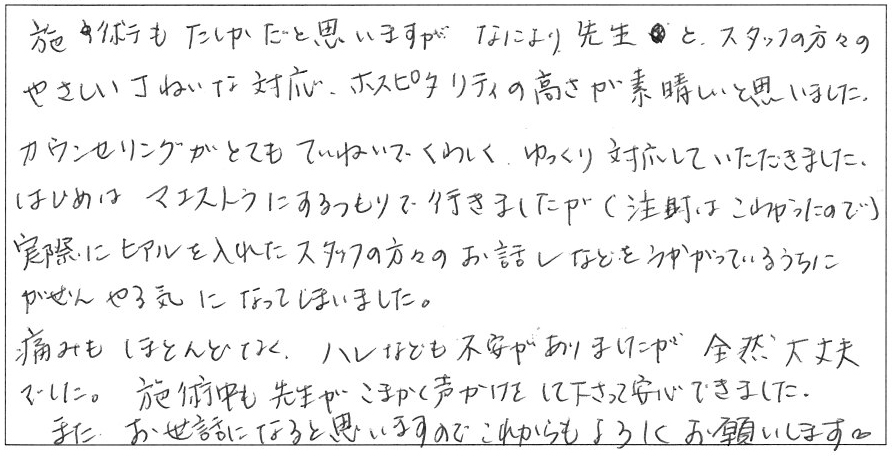 施術もたしかだと思いますが なにより先生と、スタッフの方々の
やさしい丁ねいな対応、ホスピタリティの高さが素晴しいと思いました。
カウンセリングがとてもていねいでくわしく、ゆっくり対応していただきました。
はじめは マエストラにするつもりで行きましたが(注射はこわかったので)
実際にヒアルを入れたスタッフの方々のお話しなどをうかがっているうちに
がぜんやる気になってしまいました。
痛みもほとんどなく、ハレなども不安がありましたが 全然大丈夫
でした。施術中も先生がこまかく声かけをして下さって安心できました。
また、お世話になると思いますのでこれからもよろしくお願いします。